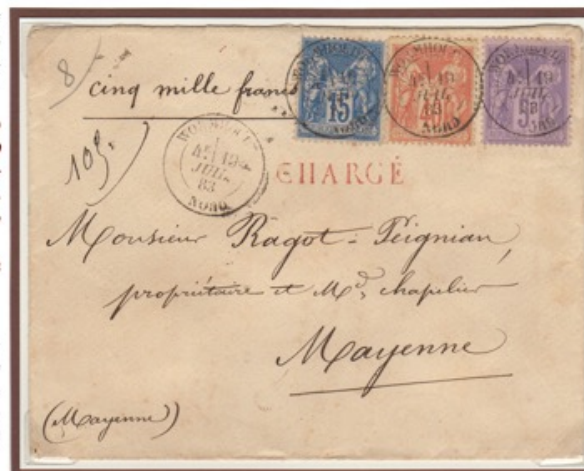 8
cinq mille francs
15
10 g.
WORMHOUT
19
JUIL
83
NORD
CHARGÉ
Monsieur Ragot-Peignian,
propriétaire et Md chapelier
Mayenne
(Mayenne)